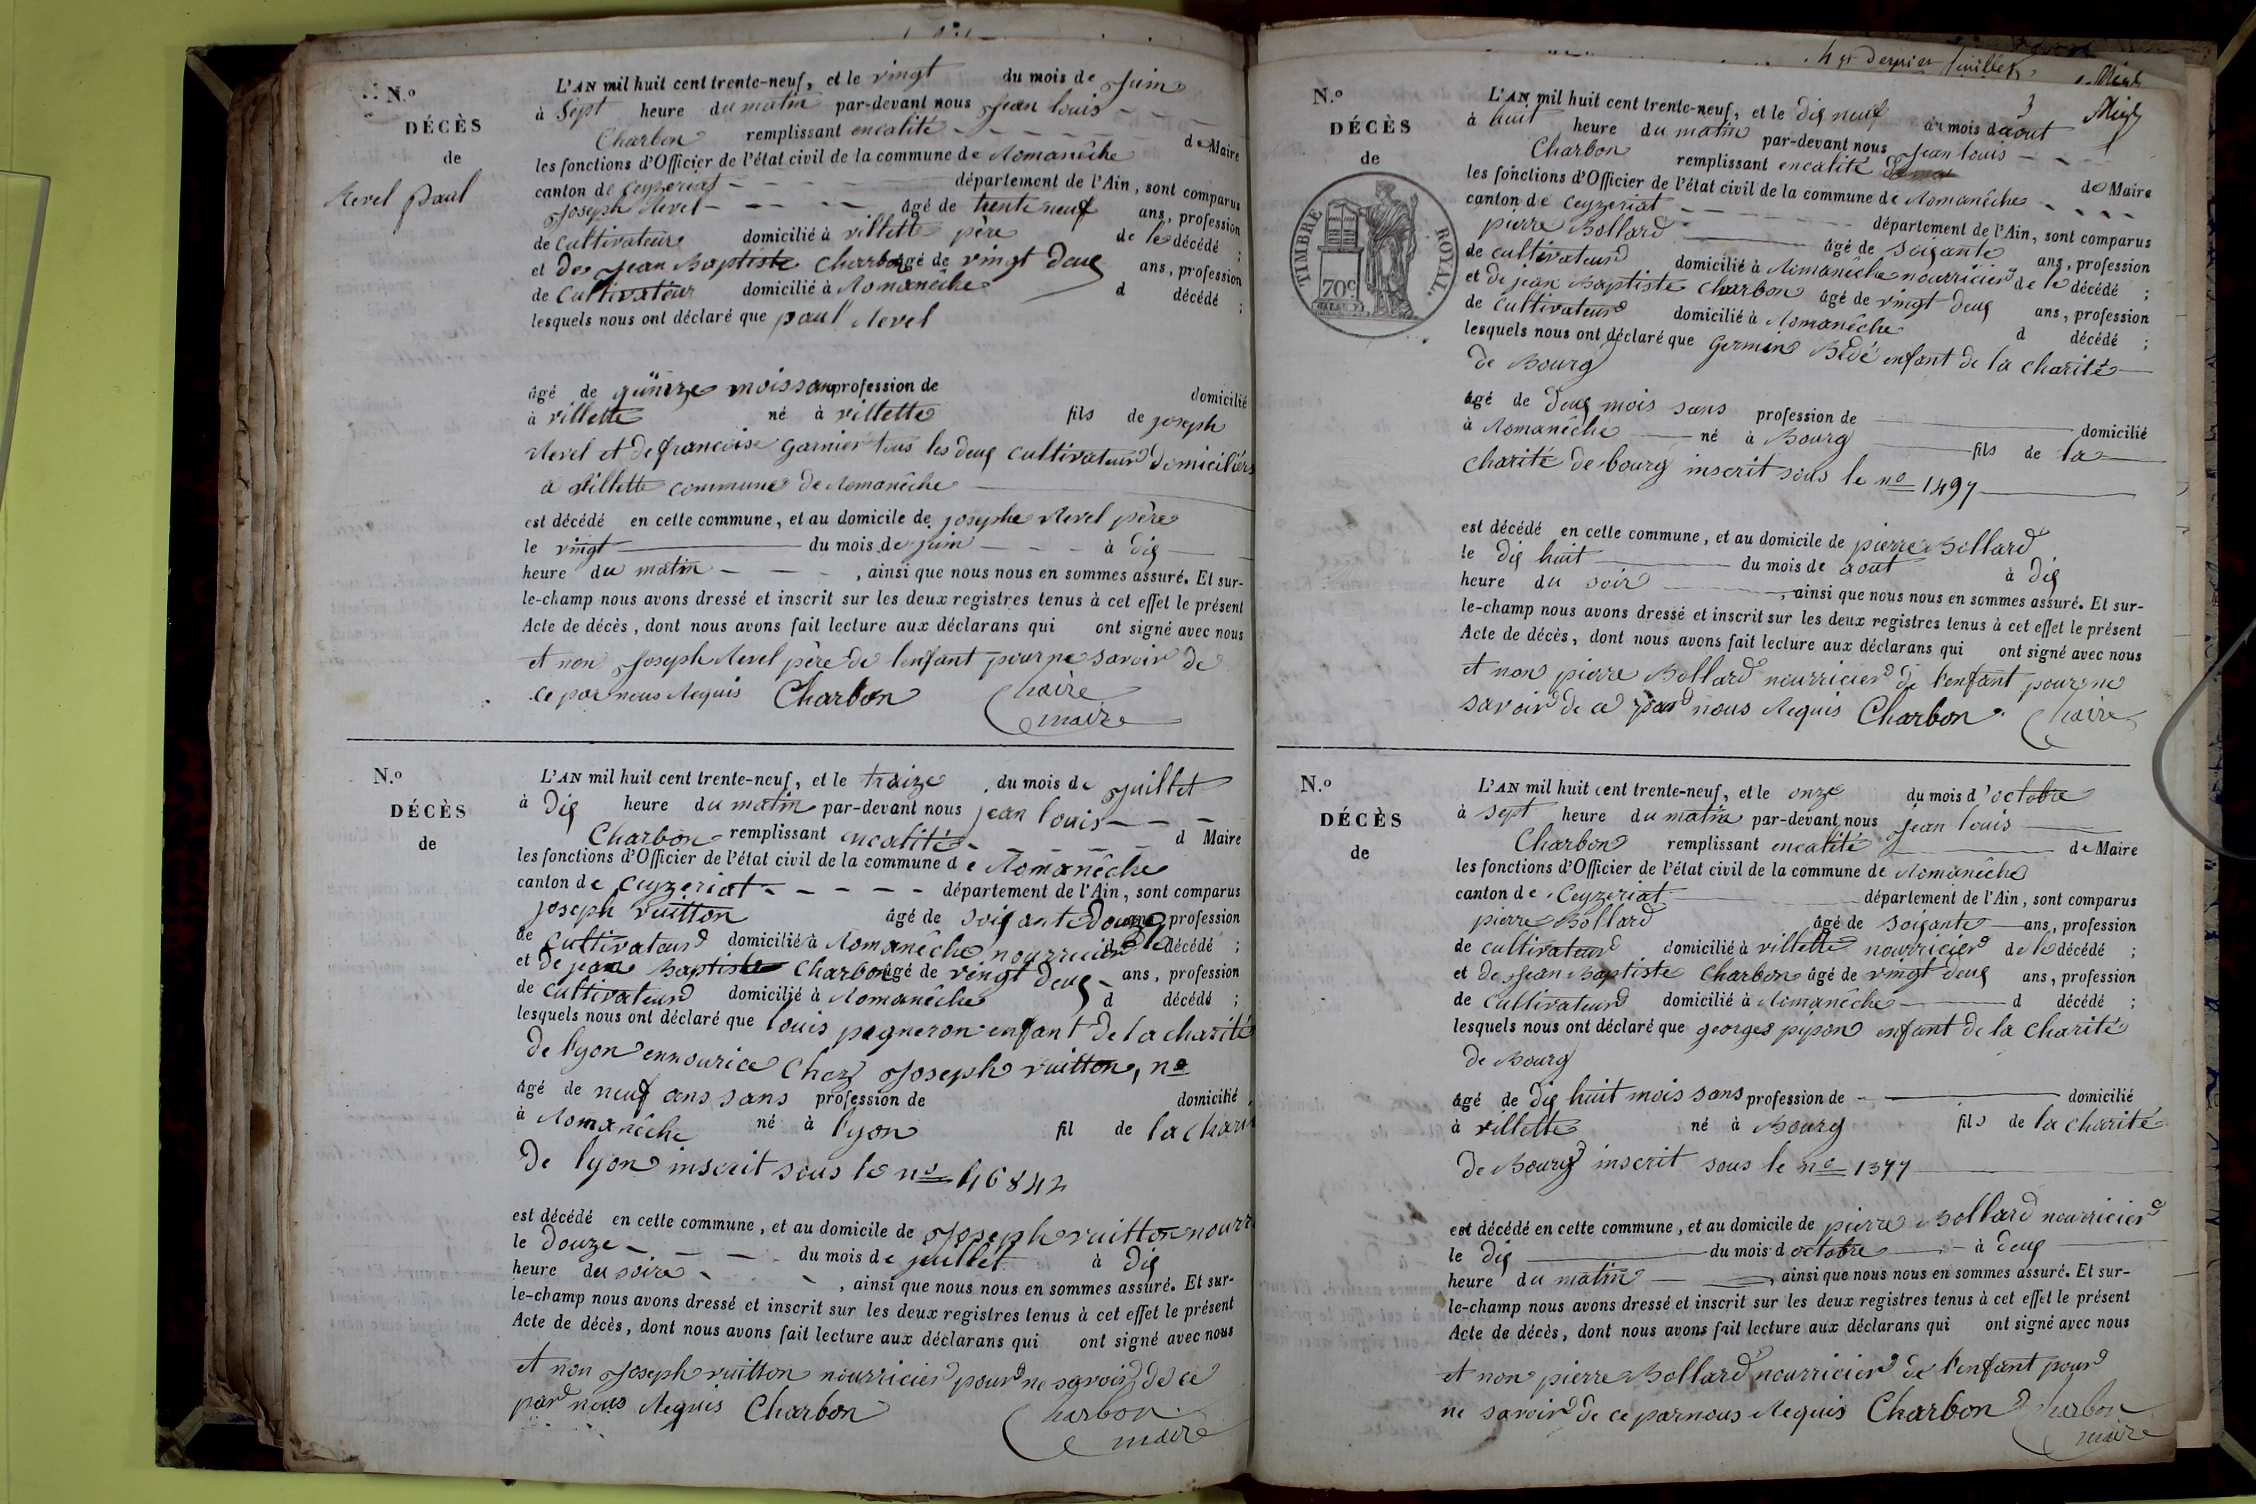 N.o
DÉCÈS
de
Revel paul
L'AN mil huit cent trente-neuf, et le vingt du mois de Juin
à Sept heure du matin par-devant nous Jean louis
Charbon remplissant encalité de Maire
les fonctions d'Officier de l'état civil de la commune de Romanêche
canton de Ceyzeriat département de l'Ain, sont comparus
Joseph Revel âgé de trente neuf ans, profession
de Cultivateur domicilié à villette père de le décédé ;
et de Jean Baptiste Charbon âgé de vingt deux ans, profession
de Cultivateur domicilié à Romanêche d décédé ;
lesquels nous ont déclaré que paul Revel
âgé de quinze mois sans profession de domicilié
à villette né à villette fils de joseph
Revel et de francoise garnier tous les deux cultivateur domiciliers
a villette commune de Romanêche
est décédé en cette commune, et au domicile de josephe Revel père
le vingt du mois de juin à dix
heure du matin , ainsi que nous nous en sommes assuré. Et sur-
le-champ nous avons dressé et inscrit sur les deux registres tenus à cet effet le présent
Acte de décès, dont nous avons fait lecture aux déclarans qui ont signé avec nous
et non Joseph Revel père de lenfant pour ne savoir de
ce par nous Requis Charbon Charbon
maire
N.o
DÉCÈS
de
L'AN mil huit cent trente-neuf, et le traize du mois de Juillet
à Dix heure du matin par-devant nous jean louis
Charbon remplissant encalité d Maire
les fonctions d'Officier de l'état civil de la commune de Romanêche
canton de Ceyzeriat département de l'Ain, sont comparus
joseph vuitton âgé de soixante douze ans, profession
de Cultivateur domicilié à Romanêche nourricier de le décédé ;
et de jean Baptiste Charbon âgé de vingt deux ans, profession
de Cultivateur domicilié à Romanêche d décédé ;
lesquels nous ont déclaré que louis pagneron enfant de la charité
de lyon ennourice chez Joseph vuitton, no
âgé de neuf ans sans profession de domicilié
à Romanêche né à lyon fil de la charit
de lyon inscrit sous le no 46842
est décédé en cette commune, et au domicile de Joseph vuitton nourr
le douze du mois de juillet à Dix
heure du soire , ainsi que nous nous en sommes assuré. Et sur-
le-champ nous avons dressé et inscrit sur les deux registres tenus à cet effet le présent
Acte de décès, dont nous avons fait lecture aux déclarans qui ont signé avec nous
et non Joseph vuitton nourricier pour ne savoir de ce
par nous Requis Charbon Charbon
maire
dernier feuillet
3
N.o
DÉCÈS
de
TIMBRE ROYAL
70c
L'AN mil huit cent trente-neuf, et le dix neuf du mois d aout
à huit heure du matin par-devant nous Jean louis
Charbon remplissant encalité de Maire
les fonctions d'Officier de l'état civil de la commune de Romanêche
canton de Ceyzeriat département de l'Ain, sont comparus
pierre Bollard âgé de soixante ans, profession
de cultivateur domicilié à Romanêche nourricier de le décédé ;
et de jean Baptiste Charbon âgé de vingt deux ans, profession
de Cultivateur domicilié à Romanêche d décédé ;
lesquels nous ont déclaré que germin enfant de la charité
de Bourg
âgé de deux mois sans profession de domicilié
à Romanêche né à Bourg fils de la
charité de bourg inscrit sous le no 1497
est décédé en cette commune, et au domicile de pierre Bollard
le dix huit du mois de aout à dix
heure du soir , ainsi que nous nous en sommes assuré. Et sur-
le-champ nous avons dressé et inscrit sur les deux registres tenus à cet effet le présent
Acte de décès, dont nous avons fait lecture aux déclarans qui ont signé avec nous
et non pierre Bollard nourricier de l'enfant pour ne
savoir de ce par nous Requis Charbon Charbon
N.o
DÉCÈS
de
L'AN mil huit cent trente-neuf, et le onze du mois d'octobre
à sept heure du matin par-devant nous Jean louis
Charbon remplissant encalité de Maire
les fonctions d'Officier de l'état civil de la commune de Romanêche
canton de Ceyzeriat département de l'Ain, sont comparus
pierre Bollard âgé de soixante ans, profession
de cultivateur domicilié à villette nourricier de le décédé ;
et de Jean Baptiste Charbon âgé de vingt deux ans, profession
de Cultivateur domicilié à Romanêche d décédé ;
lesquels nous ont déclaré que georges pipon enfant de la charité
de Bourg
âgé de dix huit mois sans profession de domicilié
à villette né à Bourg fils de la charité
de Bourg inscrit sous le no 1377
est décédé en cette commune, et au domicile de pierre Bollard nourricier
le dix du mois d octobre à deux
heure du matin , ainsi que nous nous en sommes assuré. Et sur-
le-champ nous avons dressé et inscrit sur les deux registres tenus à cet effet le présent
Acte de décès, dont nous avons fait lecture aux déclarans qui ont signé avec nous
et non pierre Bollard nourricier de l'enfant pour
ne savoir de ce par nous Requis Charbon Charbon
maire